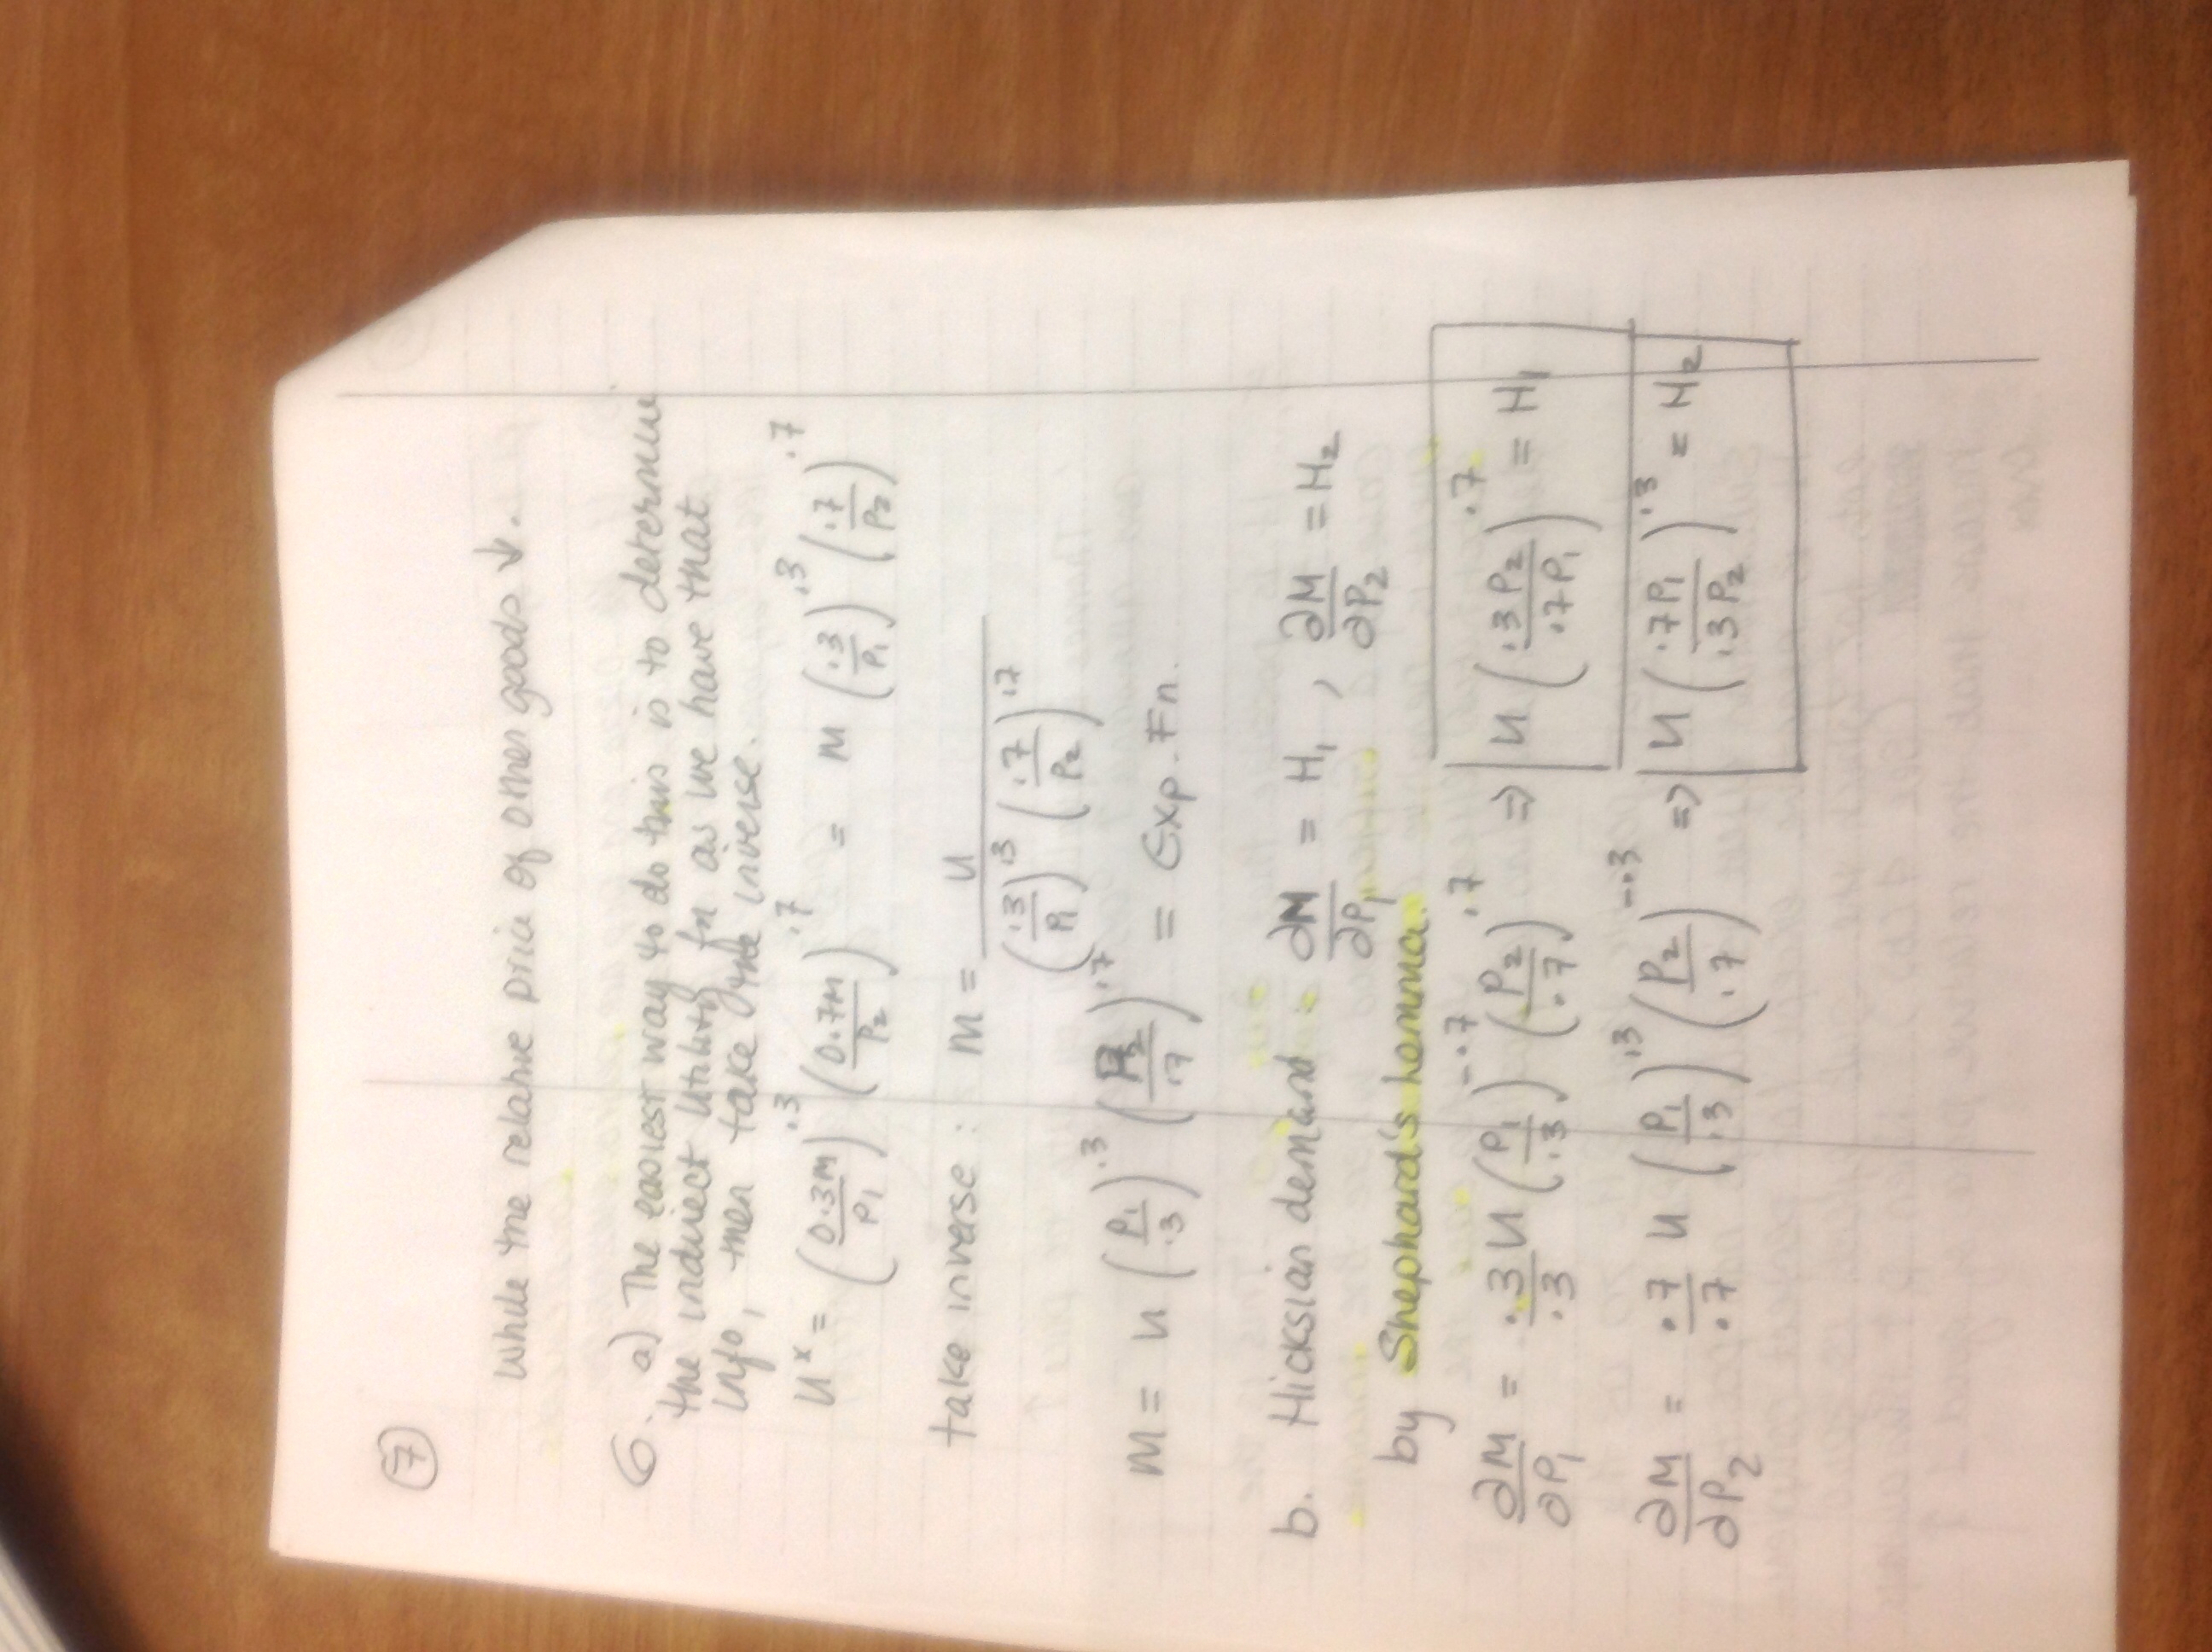 7
While the relative price of other goods ↓.
6. a) The easiest way to do this is to determine
the indirect utility fn as we have that
info, then take the inverse.
U* = (0.3M/P₁)^.3 (0.7M/P₂)^.7 = M (.3/P₁)^.3 (.7/P₂)^.7
take inverse: M = U / ((.3/P₁)^.3 (.7/P₂)^.7)
M = U (P₁/.3)^.3 (P₂/.7)^.7 = Exp. Fn.
b. Hicksian demand: ∂M/∂P₁ = H₁, ∂M/∂P₂ = H₂
by Shephard's lemma.
∂M/∂P₁ = .3/.3 U (P₁/.3)^-.7 (P₂/.7)^.7 => U (.3P₂/.7P₁)^.7 = H₁
∂M/∂P₂ = .7/.7 U (P₁/.3)^.3 (P₂/.7)^-.3 => U (.7P₁/.3P₂)^.3 = H₂